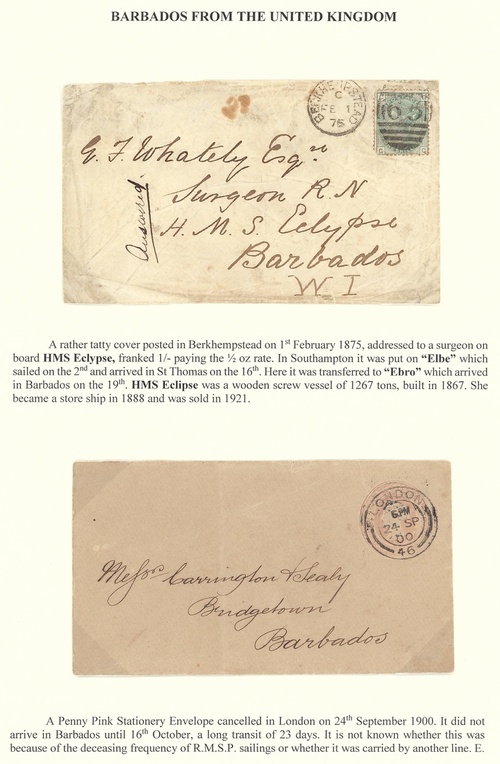 BARBADOS FROM THE UNITED KINGDOM
BERKHEMPSTEAD
C
FE 1
75
G. F. Whately Esqre
Surgeon R.N
H. M. S. Eclypse
Barbados
W I
Answered
A rather tatty cover posted in Berkhempstead on 1st February 1875, addressed to a surgeon on
board HMS Eclypse, franked 1/- paying the ½ oz rate. In Southampton it was put on “Elbe” which
sailed on the 2nd and arrived in St Thomas on the 16th. Here it was transferred to “Ebro” which arrived
in Barbados on the 19th. HMS Eclipse was a wooden screw vessel of 1267 tons, built in 1867. She
became a store ship in 1888 and was sold in 1921.
LONDON
6 PM
24 SP
00
46
Messrs Carrington & Sealy
Bridgetown
Barbados
A Penny Pink Stationery Envelope cancelled in London on 24th September 1900. It did not
arrive in Barbados until 16th October, a long transit of 23 days. It is not known whether this was
because of the deceasing frequency of R.M.S.P. sailings or whether it was carried by another line. E.